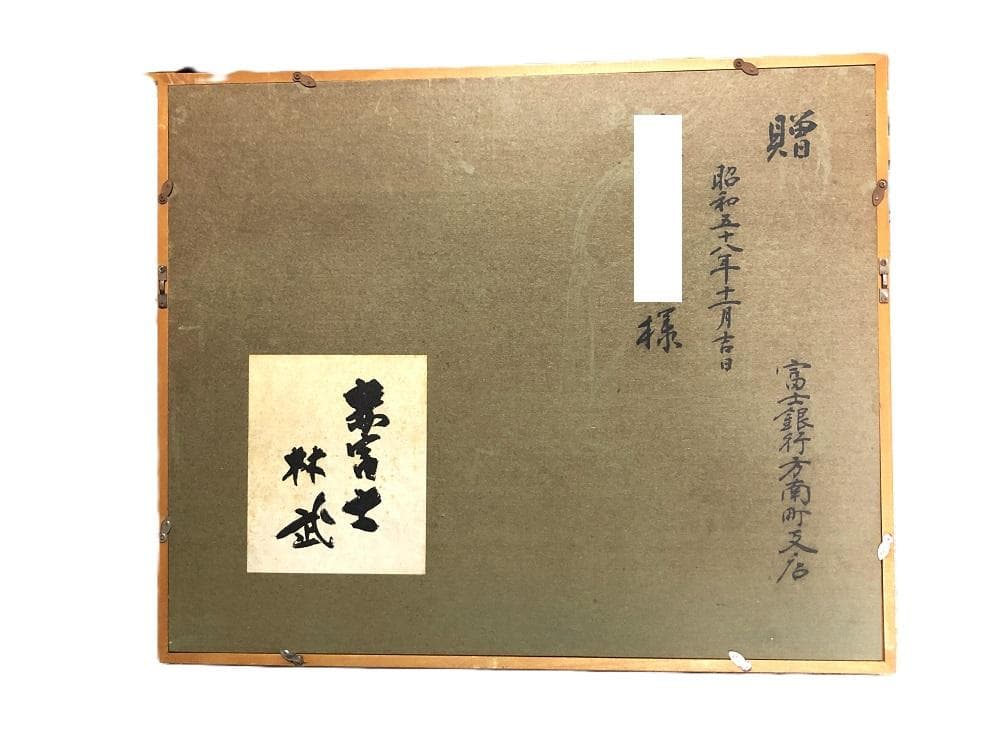 贈
富士銀行方南町支店
昭和五十八年十一月吉日
様
赤富士
林武